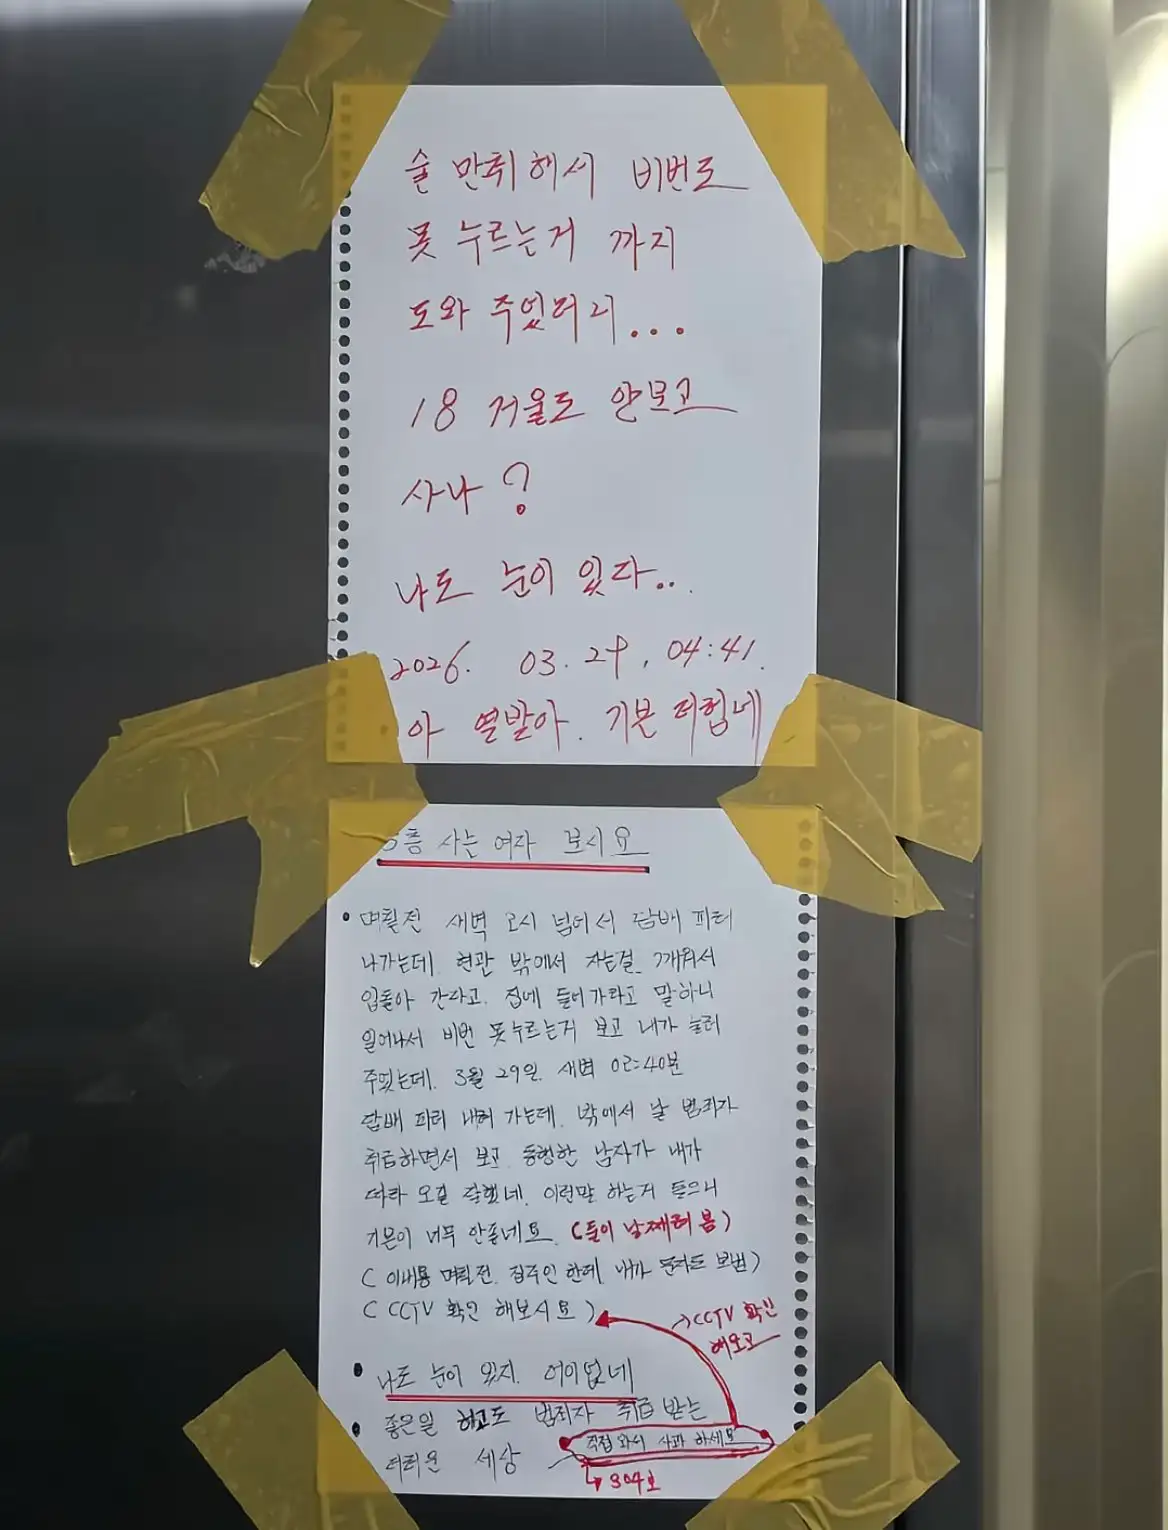 술 만취해서 비번도
못 누르는거 까지
도와 주었더니...
18 거울도 안보고
사나?
나도 눈이 있다..
2026. 03. 29, 04:41.
아 열받아. 기분 더럽네
층 사는 여자 보시요
• 며칠전 새벽 2시 넘어서 담배 피러
나가는데. 현관 밖에서 자는걸 깨워서
입돌아 간다고. 집에 들어가라고 말하니
일어나서 비번 못누르는거 보고 내가 눌러
주었는데. 3월 29일. 새벽 02:40분
담배 피러 내려 가는데. 밖에서 날 범죄자
취급하면서 보고 동행한 남자가 내가
따라 오길 잘했네. 이런말 하는거 들으니
기분이 너무 안좋네요. (둘이 날째려 봄)
( 이내용 며칠전. 집주인 한테 내가 문자도 보냄)
( CCTV 확인 해보시요)
→CCTV 확인
해보고
• 나도 눈이 있지. 어이없네
• 좋은일 하고도 범죄자 취급 받는
더러운 세상
직접 와서 사과 하세요
↳304호